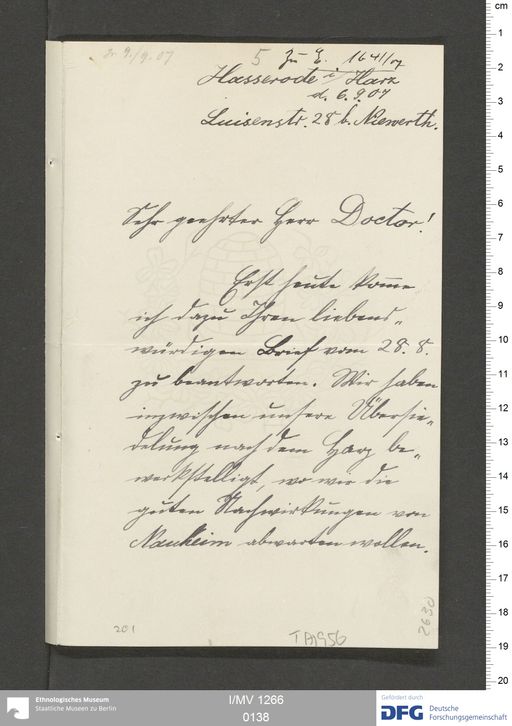 9./9. 07
5 Zu E. 1641/07
Hasserode i/Harz
d. 6.9.07
Luisenstr. 28 b. Niewerth.
Sehr geehrter Herr Doctor!
Erst heute komme
ich dazu Ihren liebens-
würdigen Brief vom 28. 8.
zu beantworten. Wir haben
inzwischen unsere Übersie-
delung nach dem Harz be-
werkstelligt, wo wir die
guten Nachwirkungen von
Nauheim abwarten wollen.
201
TA1956
2630
cm
1
2
3
4
5
6
7
8
9
10
11
12
13
14
15
16
17
18
19
20
Ethnologisches Museum
Staatliche Museen zu Berlin
I/MV 1266
0138
Gefördert durch
DFG Deutsche
Forschungsgemeinschaft